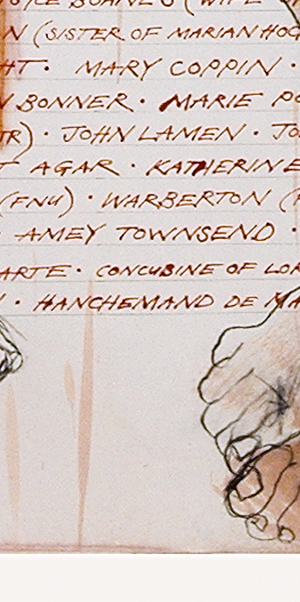 BOANES (WIFE
N (SISTER OF MARIAN HOC
HT · MARY COPPIN ·
N BONNER · MARIE PO
JR) · JOHN LAMEN · JO
T AGAR · KATHERINE
(FNU) · WARBERTON (F
· AMEY TOWNSEND ·
ARTE · CONCUBINE OF LOR
· HANCHEMAND DE MA